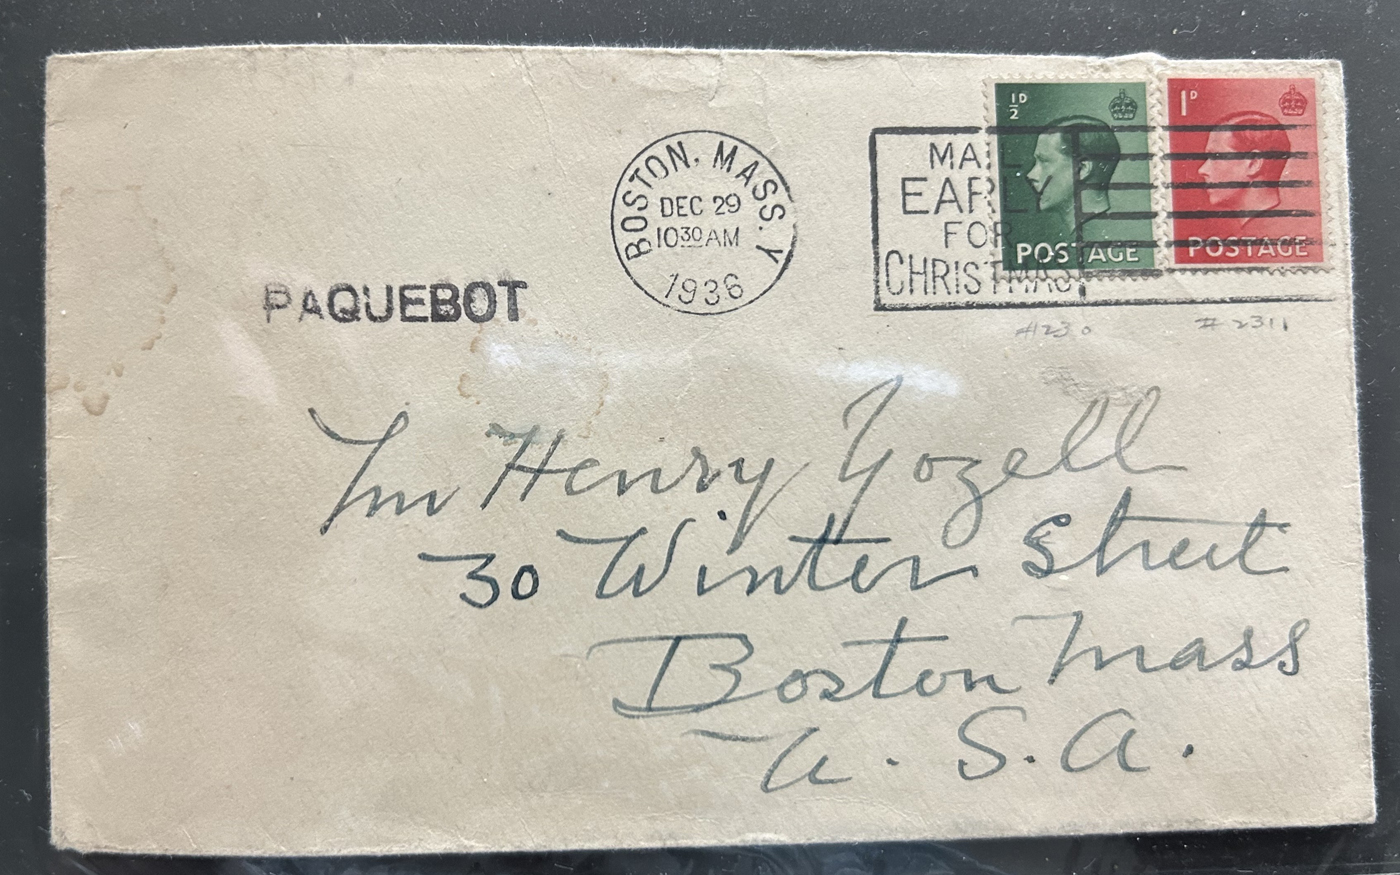 ½D
1D
POSTAGE
POSTAGE
BOSTON, MASS. Y
DEC 29
10 30 AM
1936
MAIL
EARLY
FOR
CHRISTMAS
PAQUEBOT
#230
#2311
Mr Henry Yozell
30 Winter Street
Boston Mass
U.S.A.